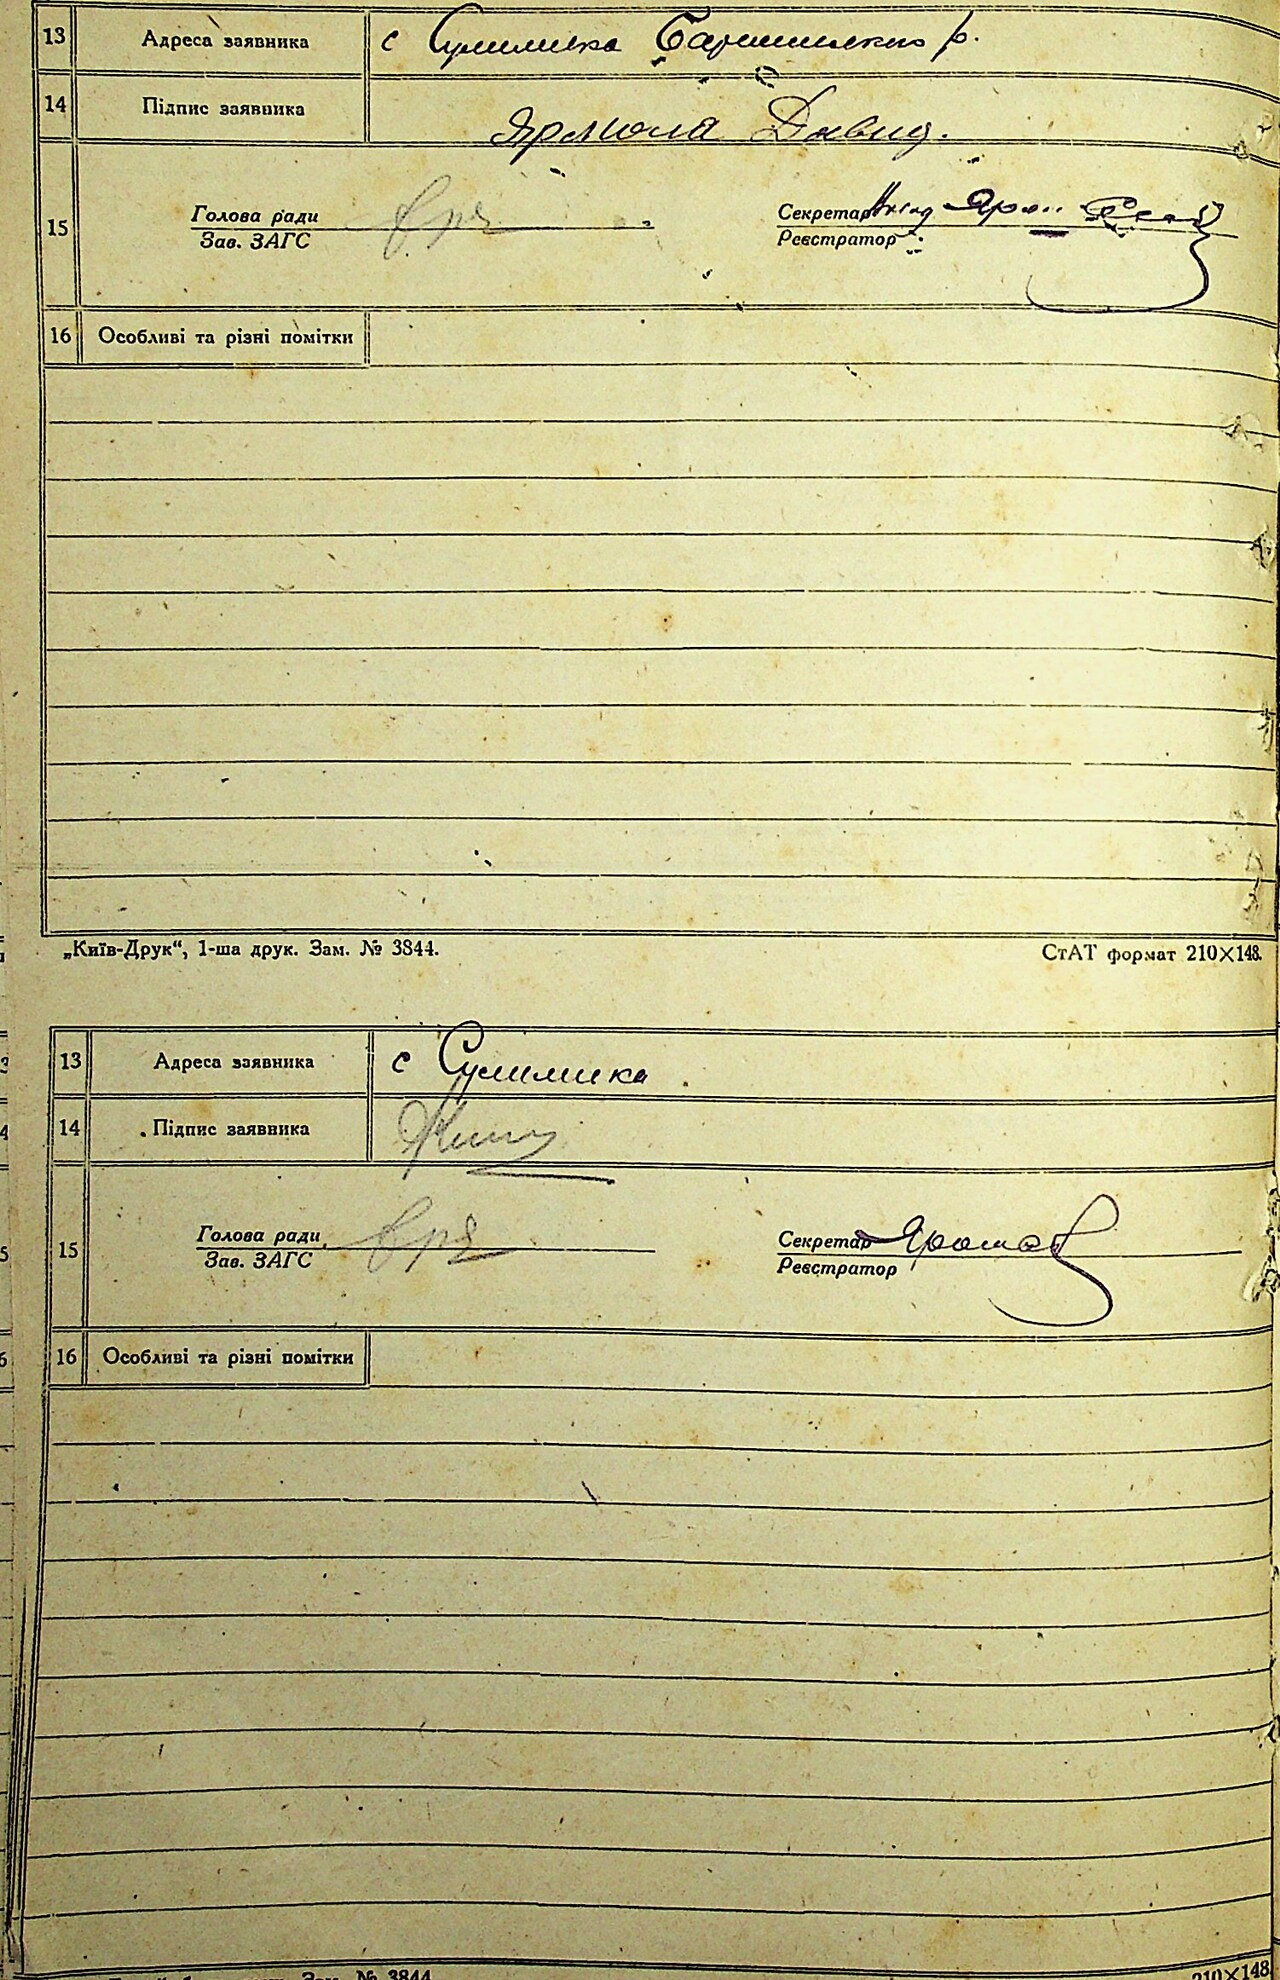 13 Адреса заявника с Сулимивка Баришивского р.
14 Підпис заявника Ярмола Давид.
15 Голова ради Секретар
Зав. ЗАГС Реєстратор
16 Особливі та різні помітки
„Київ-Друк“, 1-ша друк. Зам. № 3844. СтАТ формат 210×148.
13 Адреса заявника с Сулимика
14 Підпис заявника
15 Голова ради Секретар
Зав. ЗАГС Реєстратор
16 Особливі та різні помітки
Зам. № 3844 210×148